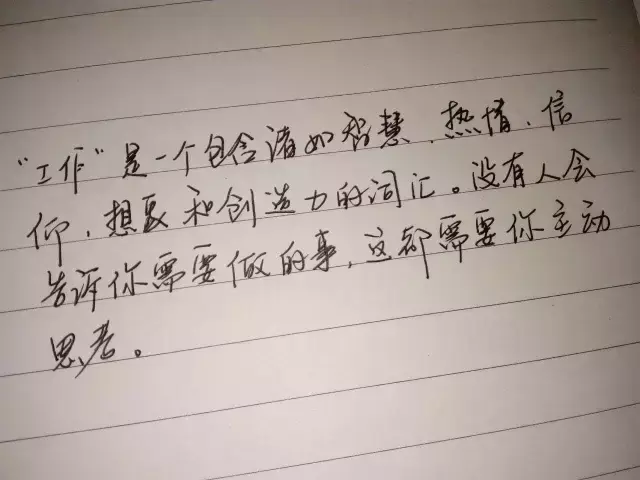 “工作”是一个包含诸如智慧、热情、信
仰、想象和创造力的词汇。没有人会
告诉你需要做的事，这都需要你主动
思考。